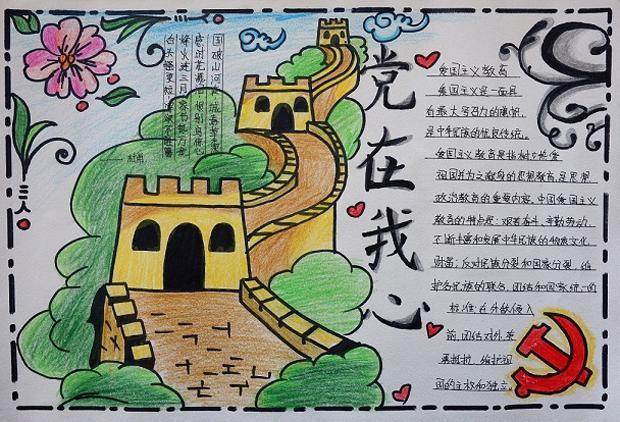 国破山河在 城春草木深
感时花溅泪 恨别鸟惊心
烽火连三月 家书抵万金
白头搔更短 浑欲不胜簪
——杜甫
党在我心
爱国主义教育
爱国主义是一面具
有最大号召力的旗帜,
是中华民族的优良传统。
爱国主义教育是指树立热爱
祖国并为之献身的思想教育,是思想
政治教育的重要内容,中国爱国主义
教育的特点是:艰苦奋斗、辛勤劳动,
不断丰富和发展中华民族的物质文化
财富;反对民族分裂和国家分裂,维
护各民族的联合,团结和国家统一的
标准:在外敌侵入
前,团结对外,英
勇抵抗,维护祖
国的主权和独立。